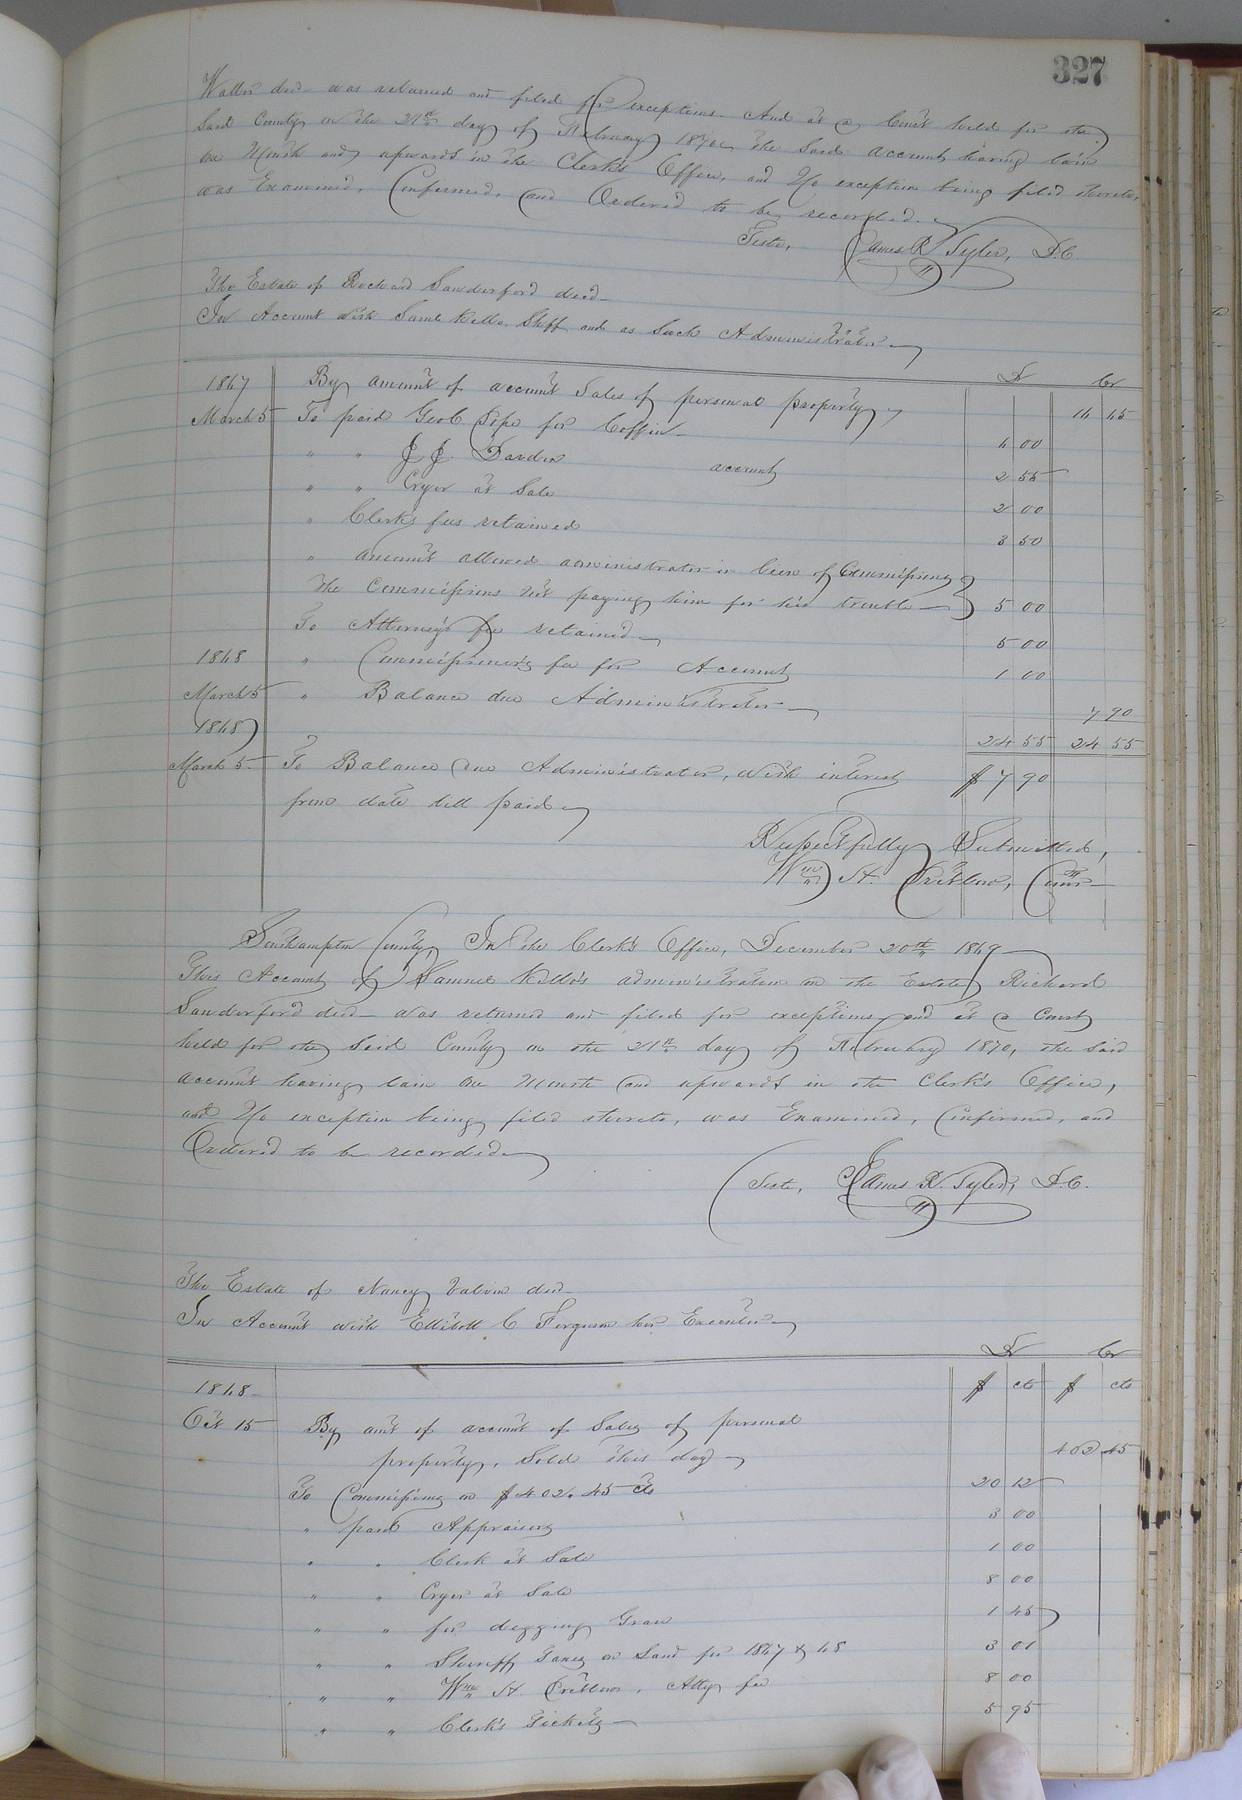 327
Waller decd was returned and filed for exceptions. And at a Court held for the
said County on the 21st day of February 1870, the said account having lain
one Month and upwards in the Clerk's Office, and No exception being filed thereto,
was Examined, Confirmed, and Ordered to be recorded.
Teste, James R Tyler, D.C.
The Estate of Richard Sanderford decd
In Account with Saml Kello Shff and as such Administrator
Dr Cr
1867 By amount of account Sales of personal property 16 65
March 5 To paid Geo C Pope for Coffin 6 00
" " J. J. Darden account 2 55
" " Cryer at Sale 2 00
" Clerk's fees retained 3 50
" amount allowed administrator in lieu of Commissions
The Commissions not paying him for his trouble 5 00
To Attorney's fee retained 5 00
1868 " Commissioner's fee for Account 1 00
March 5 " Balance due Administrator 7 90
1868 24 55 24 55
March 5 To Balance due Administrator, with interest $ 7 90
from date till paid
Respectfully Submitted,
Wm H. Comr
Southampton County, In the Clerk's Office, December 20th 1869
This Account of Samuel Kello's administration on the Estate Richard
Sanderford decd was returned and filed for exceptions and at a Court
held for the said County on the 21st day of February 1870, the said
account having lain one Month and upwards in the Clerk's Office,
and No exception being filed thereto, was Examined, Confirmed, and
Ordered to be recorded
Teste, James R. Tyler, D.C.
The Estate of Nancy decd
In Account with C Ferguson her Executor
Dr Cr
1868 $ cts $ cts
Oct 15 By amt of account of Sales of personal
property, Sold this day 402 45
To Commissions on $402.45 cts 20 12
" paid Appraisers 3 00
" " Clerk at Sale 1 00
" " Cryer at Sale 8 00
" " for digging Grave 1 45
" " Sheriff Taxes on Land for 1867 & 68 3 01
" " Wm H. Atty fee 8 00
" " Clerk's Tickets 5 95